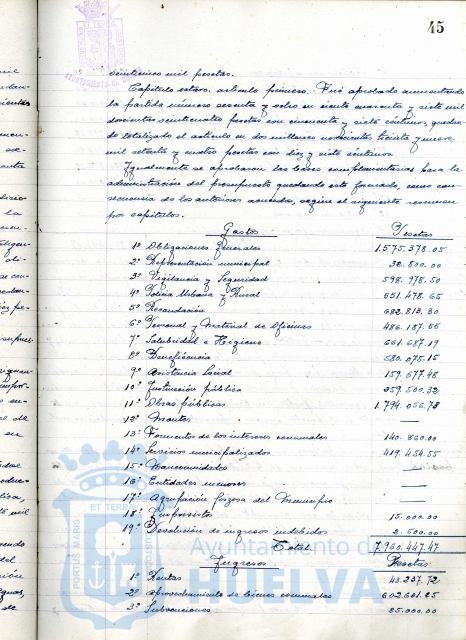 45
veinticinco mil pesetas.
Capítulo octavo. artículo primero. Fué aprobado aumentando
la partida número sesenta y ocho en ciento cuarenta y siete mil
doscientos veinticuatro pesetas con cincuenta y siete céntimos, quedan-
do totalizado el artículo en dos millones novecientos treinta y nueve
mil setenta y cuatro pesetas con diez y siete céntimos.
Igualmente se aprobaron las bases complementarias para la
administración del presupuesto quedando este formado, como con-
secuencia de los anteriores acuerdos, según el siguiente resumen
por capítulos.
Gastos Pesetas
1º Obligaciones generales 1.575.378.05
2º Representación municipal 32.800.00
3º Vigilancia y Seguridad 598.778.50
4º Policia Urbana y Rural 651.478.65
5º Recaudación 682.813.80
6º Personal y Material de Oficinas 486.187.66
7º Salubridad e Higiene 661.687.19
8º Beneficencia 580.075.15
9º Asistencia Social 159.677.48
10º Instrucción pública 259.500.32
11º Obras públicas 1.794.056.73
12º Montes —
13º Fomentos de los intereses comunales 140.860.00
14º Servicios municipalizados 419.454.55
15º Mancomunidades —
16º Entidades menores —
17º Agrupación forzosa del Municipio —
18º Imprevistos 15.000.00
19º Devolución de ingresos indebidos 2.500.00
Total 7.960.447.47
Ingresos Pesetas
1º Rentas 43.237.72
2º Aprovechamiento de bienes comunales 602.601.25
3º Subvenciones 25.000.00
Ayuntamiento de
HUELVA
PORTUS MARIS ET TERRÆ